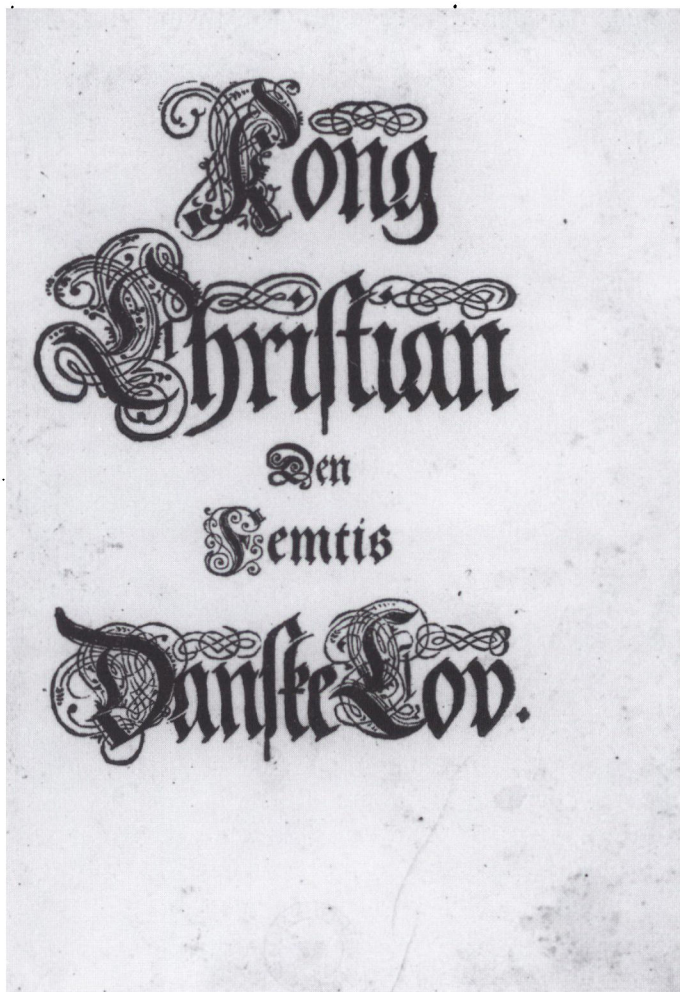 Kong
Christian
Den
Femtis
Danske Lov.